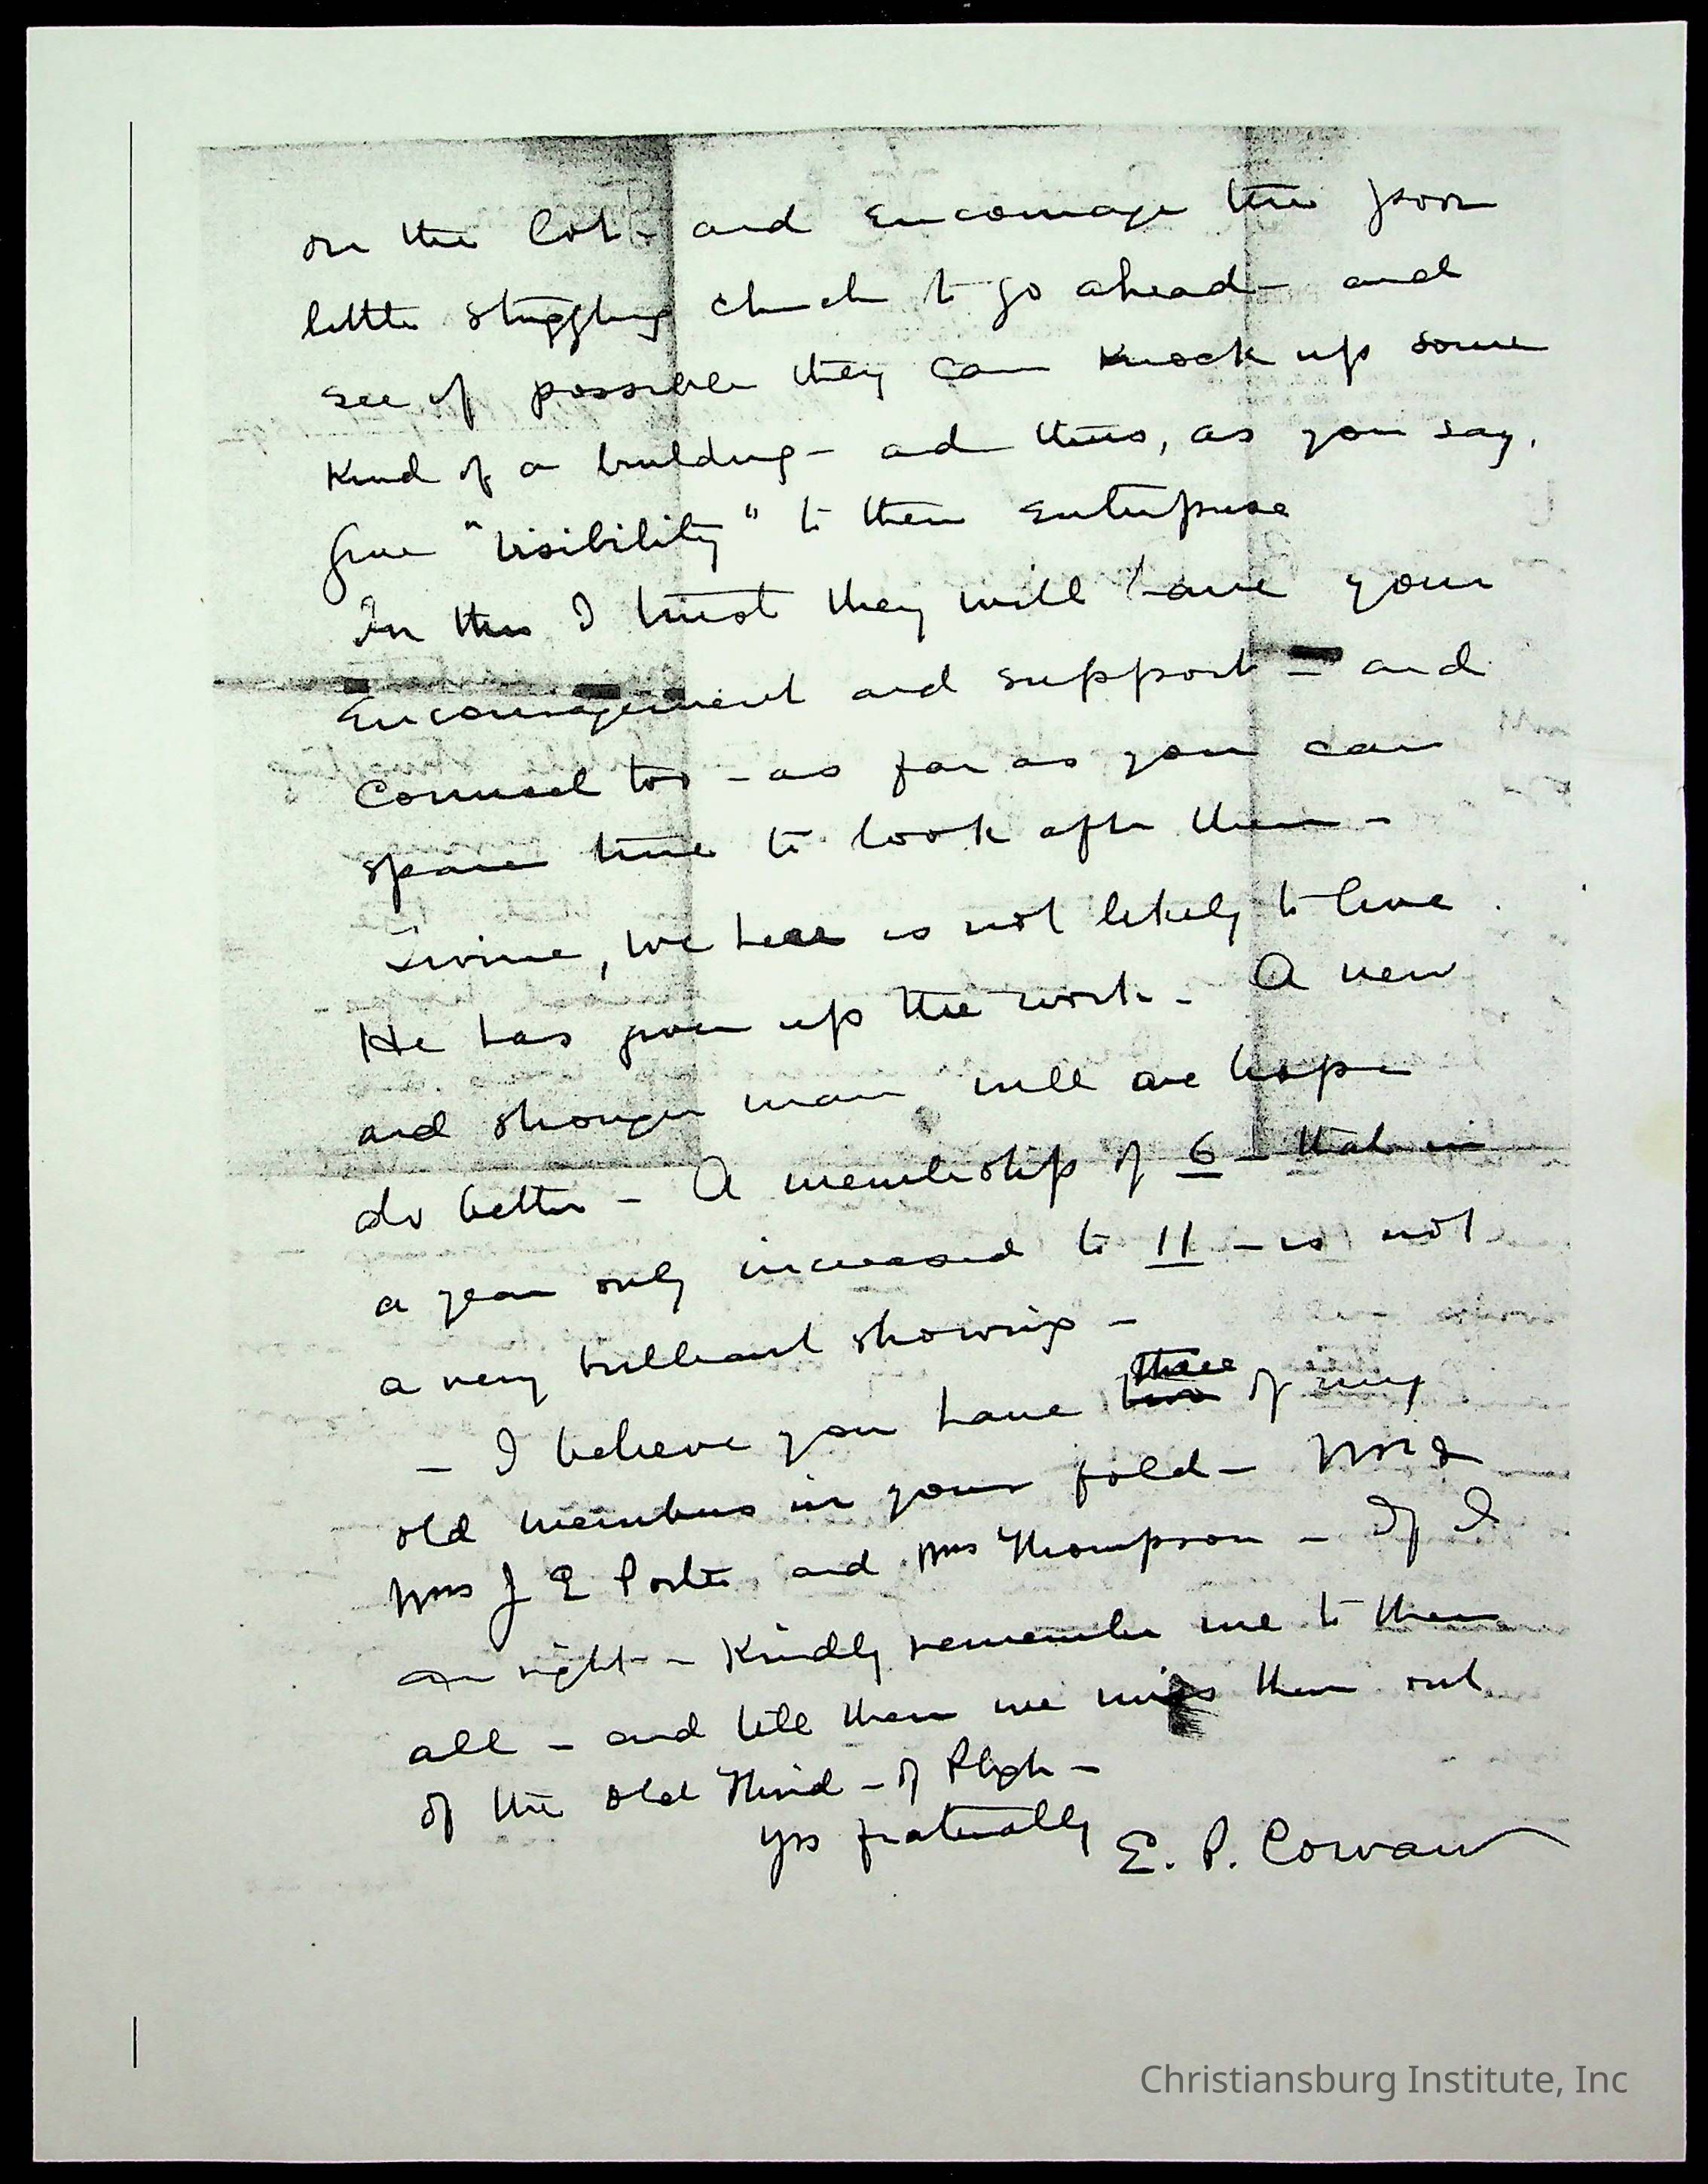 on the lot - and encourage the poor
little struggling church to go ahead - and
see if possible they can knock up some
kind of a building - and thus, as you say,
give "visibility" to their enterprise
In this I trust they will have your
encouragement and support - and
Counsel too - as far as you can
spare time to look after them -
Irvine, we hear is not likely to live.
He has given up the work - A new
and stronger man will we hope
do better - A membership of 6 - that in
a year only increased to 11 - is not
a very brilliant showing -
- I believe you have two three of my
old members in your fold - Mr &
Mrs J E Porter and Mrs Thompson - If I
am right - Kindly remember me to them
all - and tell them we miss them out
of the old Third - of Pbgh -
Yrs fraternally E. P. Cowan
Christiansburg Institute, Inc